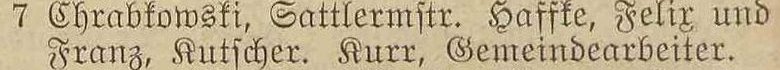 7 Chrabkowski, Sattlermstr. Haffke, Felix und
Franz, Kutscher. Kurr, Gemeindearbeiter.